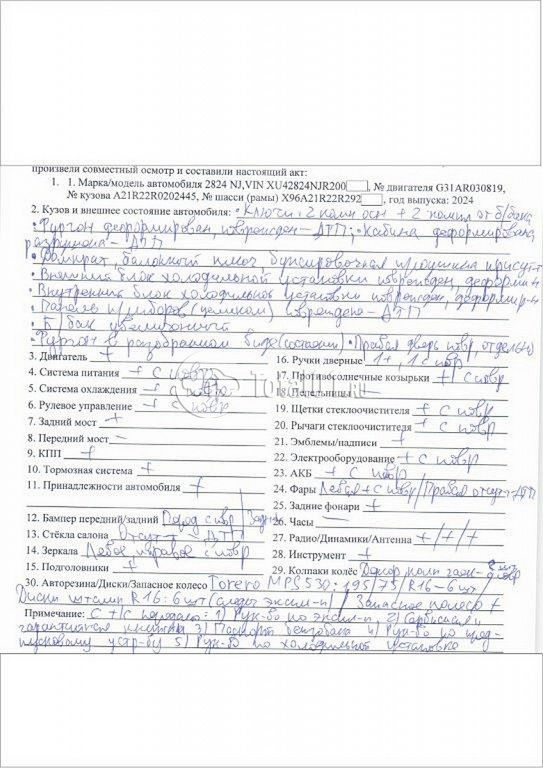 произвели совместный осмотр и составили настоящий акт:
1. 1. Марка/модель автомобиля 2824 NJ,VIN XU42824NJR200, № двигателя G31AR030819,
№ кузова A21R22R0202445, № шасси (рамы) X96A21R22R292, год выпуска: 2024
2. Кузов и внешнее состояние автомобиля: • Ключи: 2 комп осн + 2 компл от б/бака
• Фургон деформирован, поврежден – ДТП; • Кабина деформирована,
разрушена – ДТП
• Домкрат, балонный ключ, буксировочная проушина присутт
• Внешний блок холодильной установки поврежден, деформ-н
• Внутренний блок холодильной установки поврежден, деформир-н
• Панель приборов (целиком) повреждена – ДТП
• Б/бак увеличенный
• Фургон в разобранном виде (составлен) • Правая дверь повр, отдельно
3. Двигатель +
16. Ручки дверные 1+, 1 с повр
4. Система питания + с повр
17. Противосолнечные козырьки + / с повр
5. Система охлаждения + с повр
18. Пепельницы
6. Рулевое управление + с повр
19. Щетки стеклоочистителя + с повр
7. Задний мост +
20. Рычаги стеклоочистителя + с повр
8. Передний мост –
21. Эмблемы/надписи +
9. КПП +
22. Электрооборудование + с повр
10. Тормозная система +
23. АКБ + с повр
11. Принадлежности автомобиля +
24. Фары Левая + с повр / Правая отсут-ДТП
25. Задние фонари +
12. Бампер передний/задний Перед с повр / Задн
26. Часы —
13. Стёкла салона Отсут – ДТП
27. Радио/Динамики/Антенна + / + / +
14. Зеркала Левое правое с повр
28. Инструмент +
15. Подголовники +
29. Колпаки колёс Декор колп
30. Авторезина/Диски/Запасное колесо Torero MPS530: 195/75/R16-6шт
Диски штамп R16: 6шт (следы эксп-и) / Запасное колесо +
Примечание: С т/с передано: 1) Рук-во по эксп-и 2) Сервисная и
гарантийная книжка 3) Паспорт бензобака 4) Рук-во по пред-
пусковому устр-ву 5) Рук-во по холодильной установке
Torgim.ru